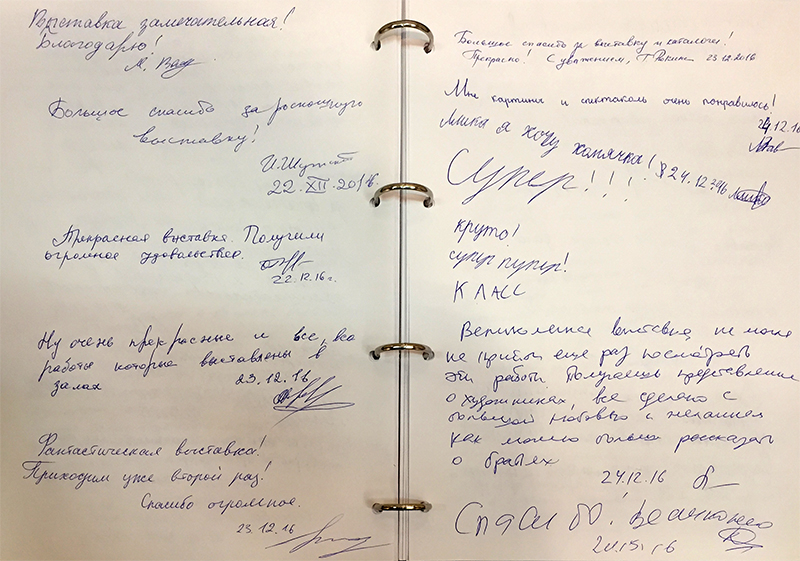 Выставка замечательная!
Благодарю!
Большое спасибо за роскошную
выставку!
22.XII.2016.
Прекрасная выставка. Получили
огромное удовольствие.
22.12.16г.
Ну очень прекрасные и все, все
работы которые выставлены в
залах 23.12.16
Фантастическая выставка!
Приходим уже второй раз!
Спасибо огромное.
23.12.16
Большое спасибо за выставку и каталоги!
Прекрасно! С уважением, 23.12.2016
Мне картины и спектакль очень понравились!
24.12.16
я хочу хомячка!
Супер!!! 24.12.2016
круто!
супер пупер!
КЛАСС
Великолепная выставка, не могла
не прийти еще раз посмотреть
эти работы. Получаешь представление
о художниках, все сделано с
большой любовью и желанием
как можно больше рассказать
о братьях
24.12.16
Спасибо! Великолепно